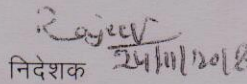 Rajeev
24/11/2018
निदेशक